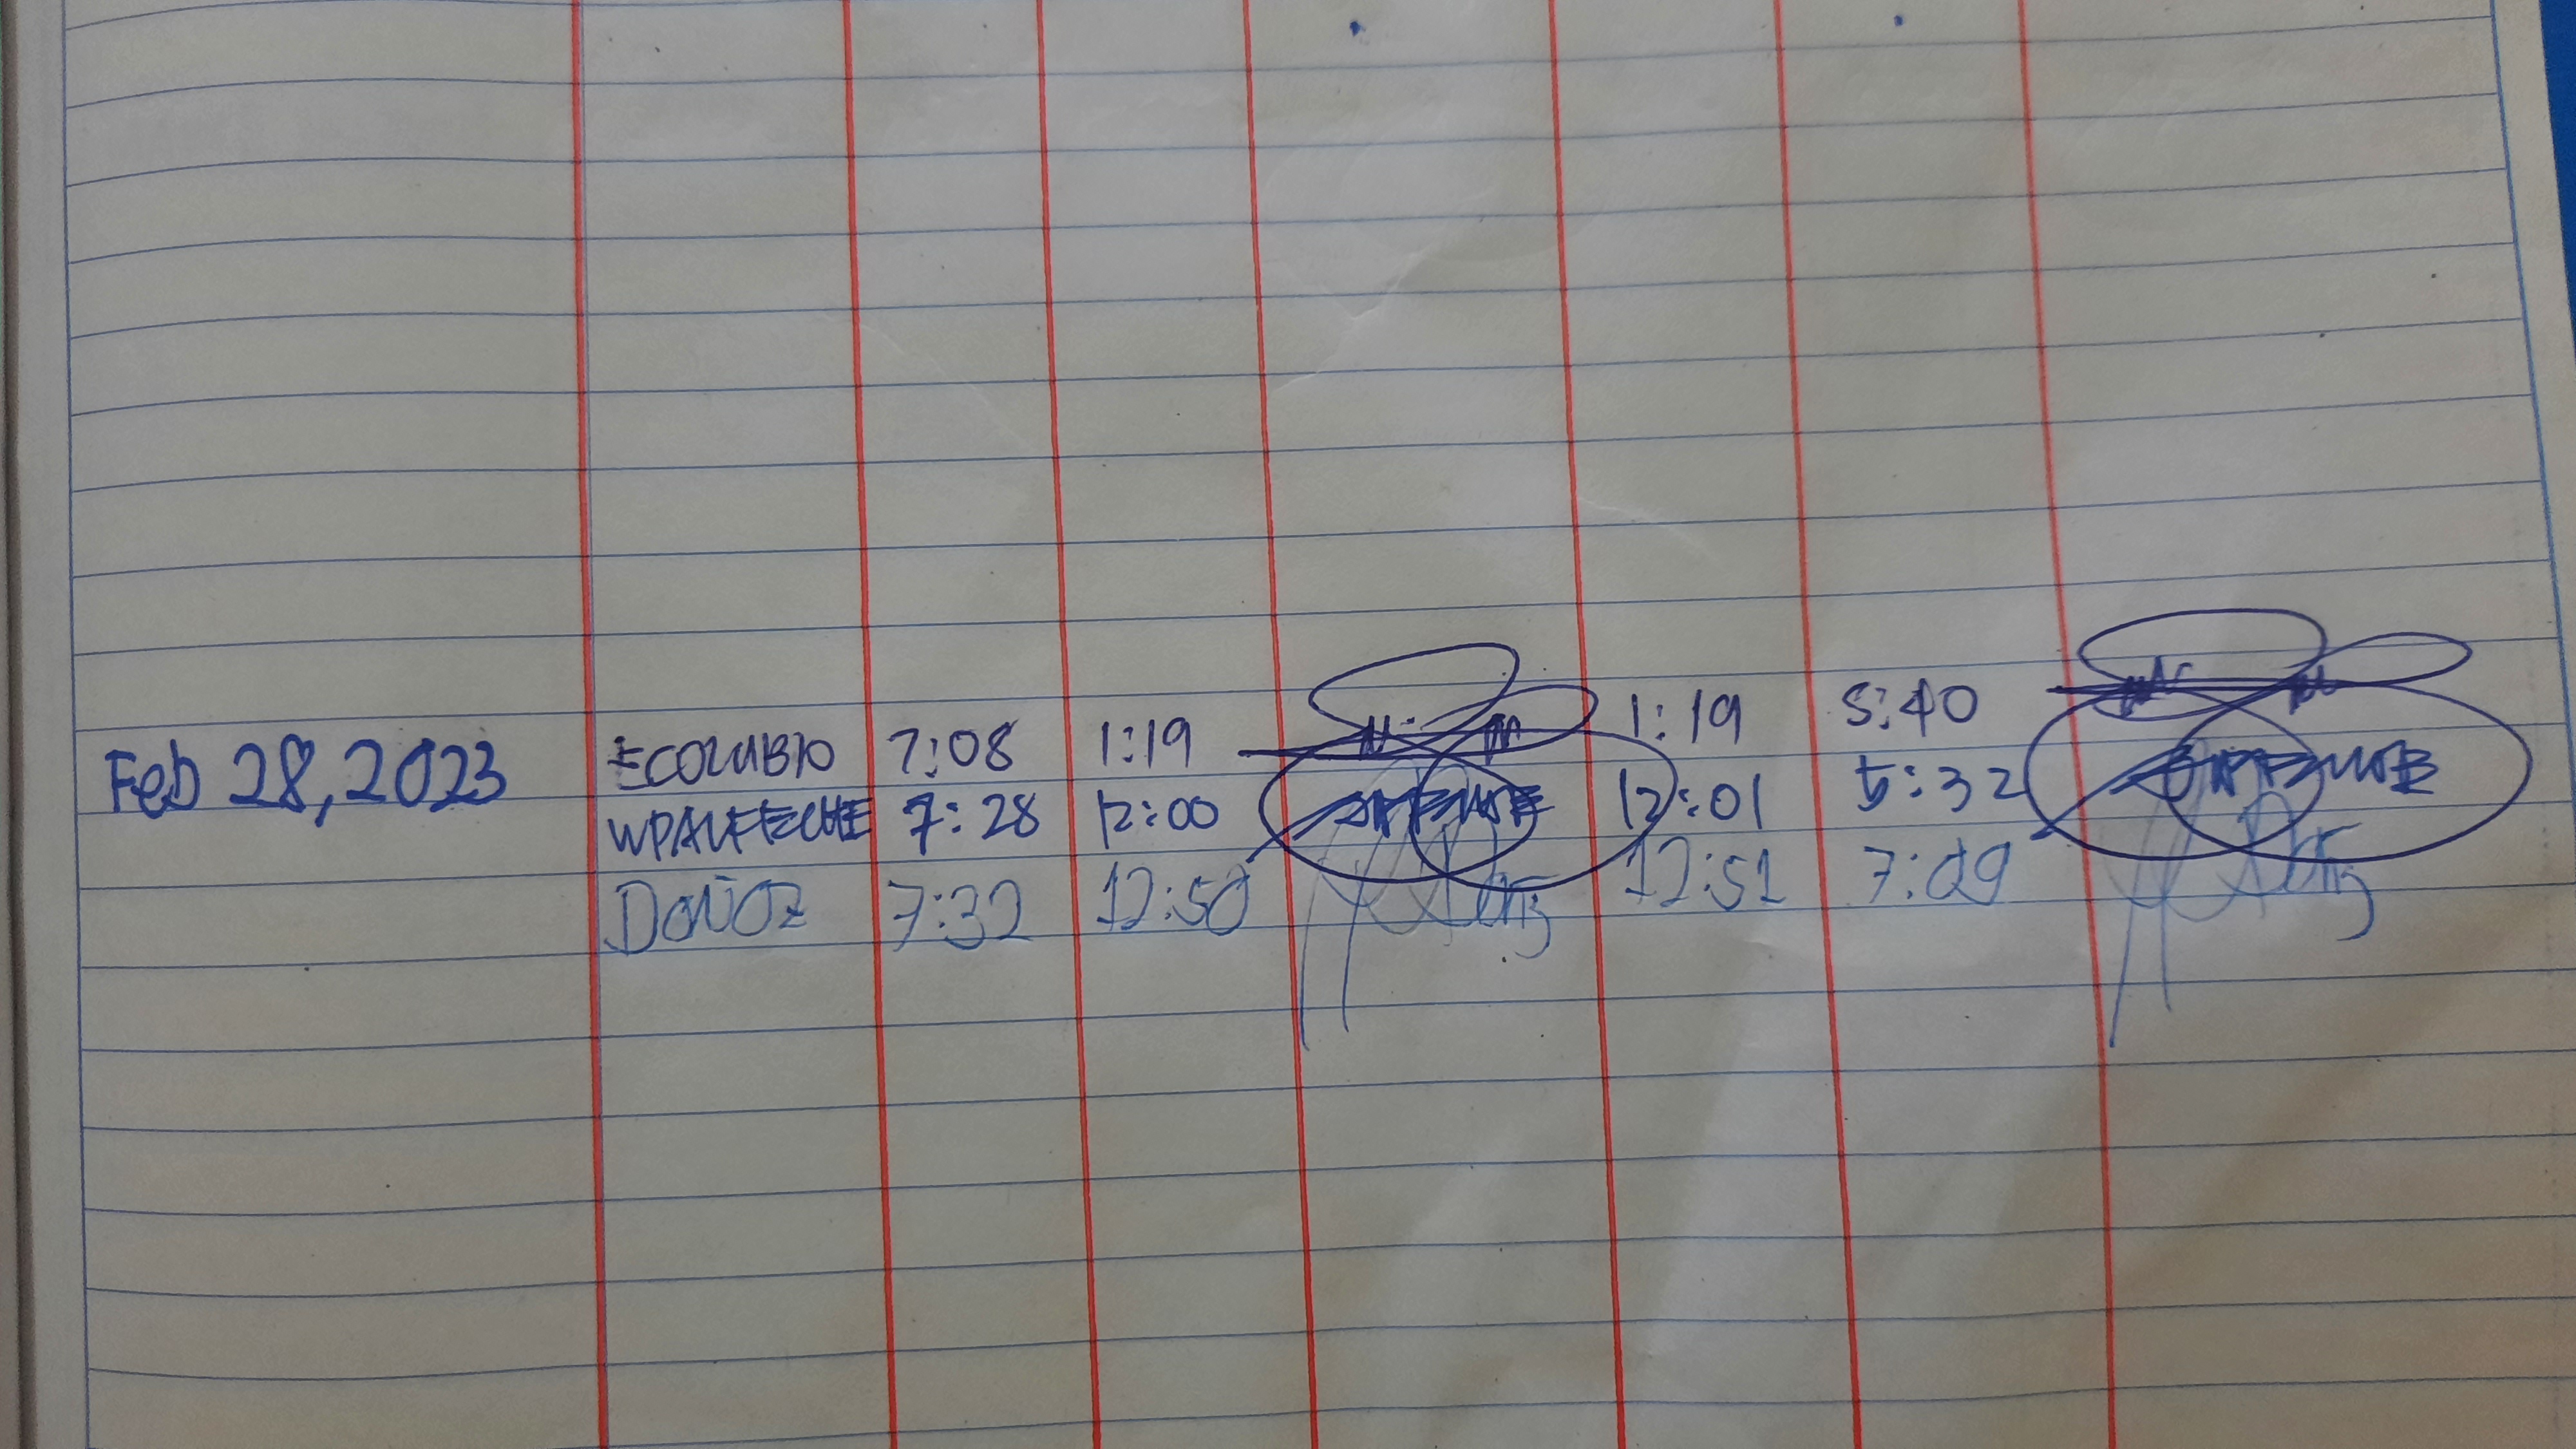 Feb 28, 2023 ECOLUBIO 7:08 1:19 1:19 5:40
WPALFECHE 7:28 12:00 12:01 5:32
DOÑOZ 7:32 12:50 12:51 7:09